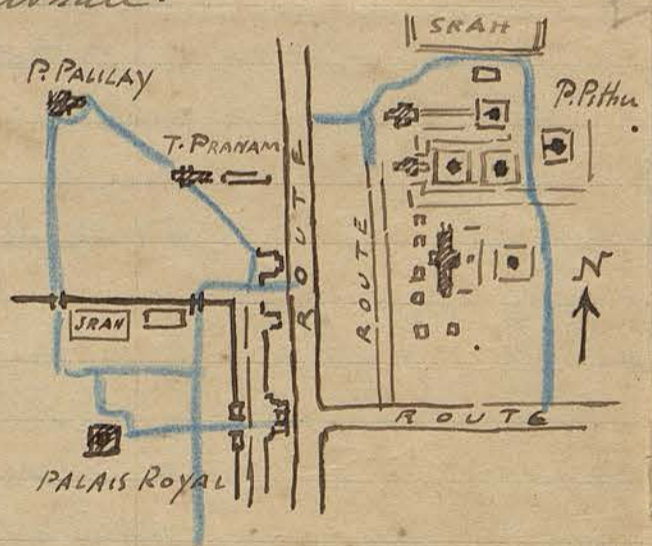 SRAH
P. PALILAY
P. Pithu
T. PRANAM
ROUTE
ROUTE
N
SRAH
ROUTE
PALAIS ROYAL